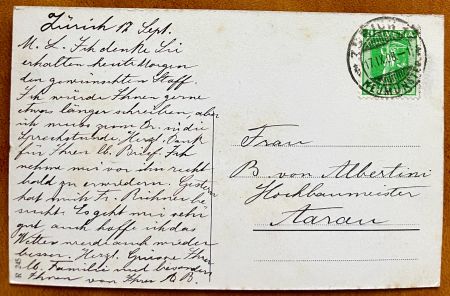 Zürich 17 Sept.
M. L. Ich denke Sie
erhalten heute Morgen
den gewünschten Stoff.
Ich würde Ihnen gerne
etwas länger schreiben, aber
ich muss zum Dr. in die
Sprechstunde. Herzl. Dank
für Ihren lb. Brief. Ich
nehme mir vor ihn recht
bald zu erwiedern. Gestern
hat mich Fr. Richner be-
sucht. Es geht mir sehr
gut auch hoffe ich das
Wetter werde auch wieder
besser. Herzl. Grüsse Ihrer
lb. Familie und besonders
Ihnen von Ihrer A B.
ZÜRICH
Frau
B von Albertini
Hochbaumeister
Aarau